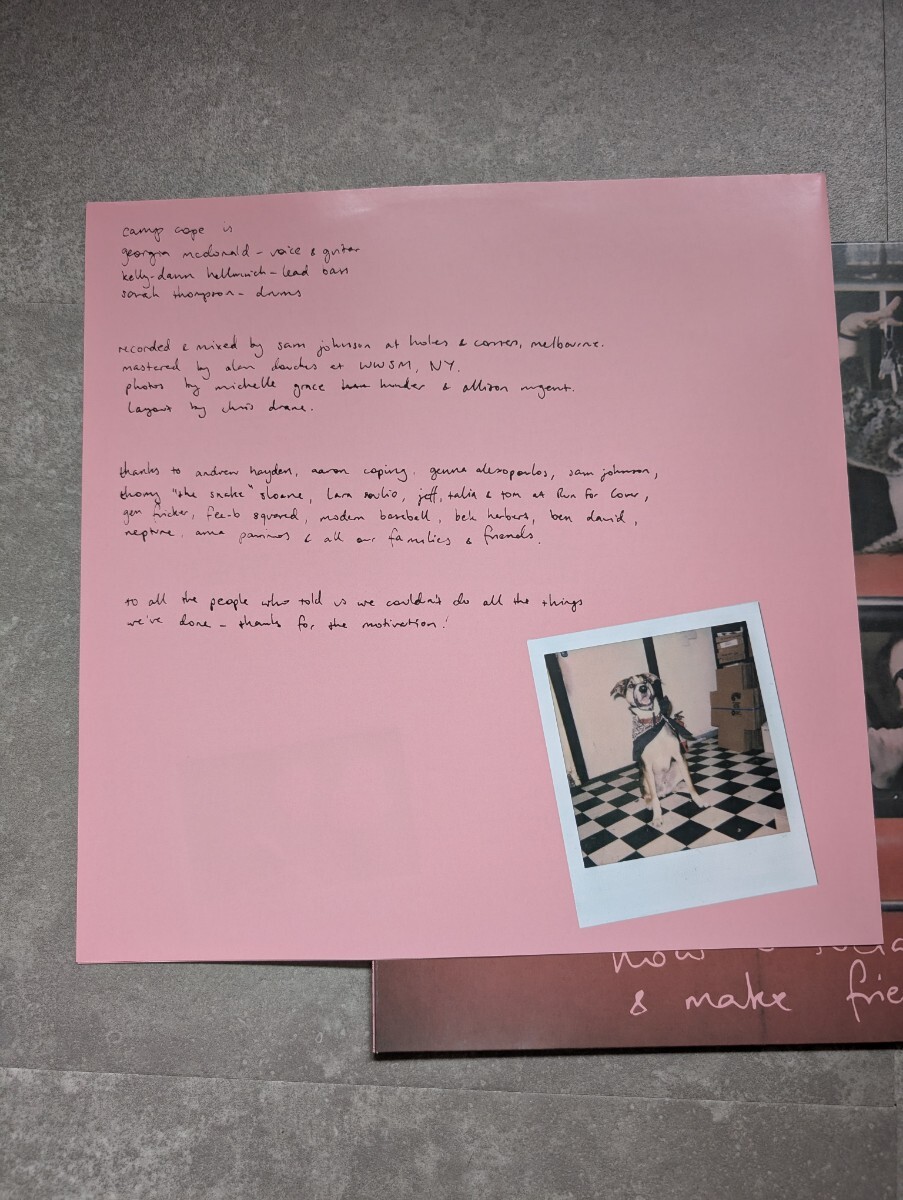 camp cope is
georgia mcdonald - voice & guitar
kelly-dawn hellmrich - lead bass
sarah thompson - drums
recorded & mixed by sam johnson at holes & corners, melbourne.
mastered by alan douches at WWSM, NY.
photos by michelle grace hunder & allison nugent.
layout by chris drane.
thanks to andrew hayden, aaron coping, genna alexopoulos, sam johnson,
thomy "the snake" sloane, lara soulio, jeff, talia & tom at Run For Cover,
gen fricker, fee-b squared, modern baseball, bek herbers, ben david,
neptune, anna & all our families & friends.
to all the people who told us we couldn't do all the things
we've done - thanks for the motivation!
how
& make